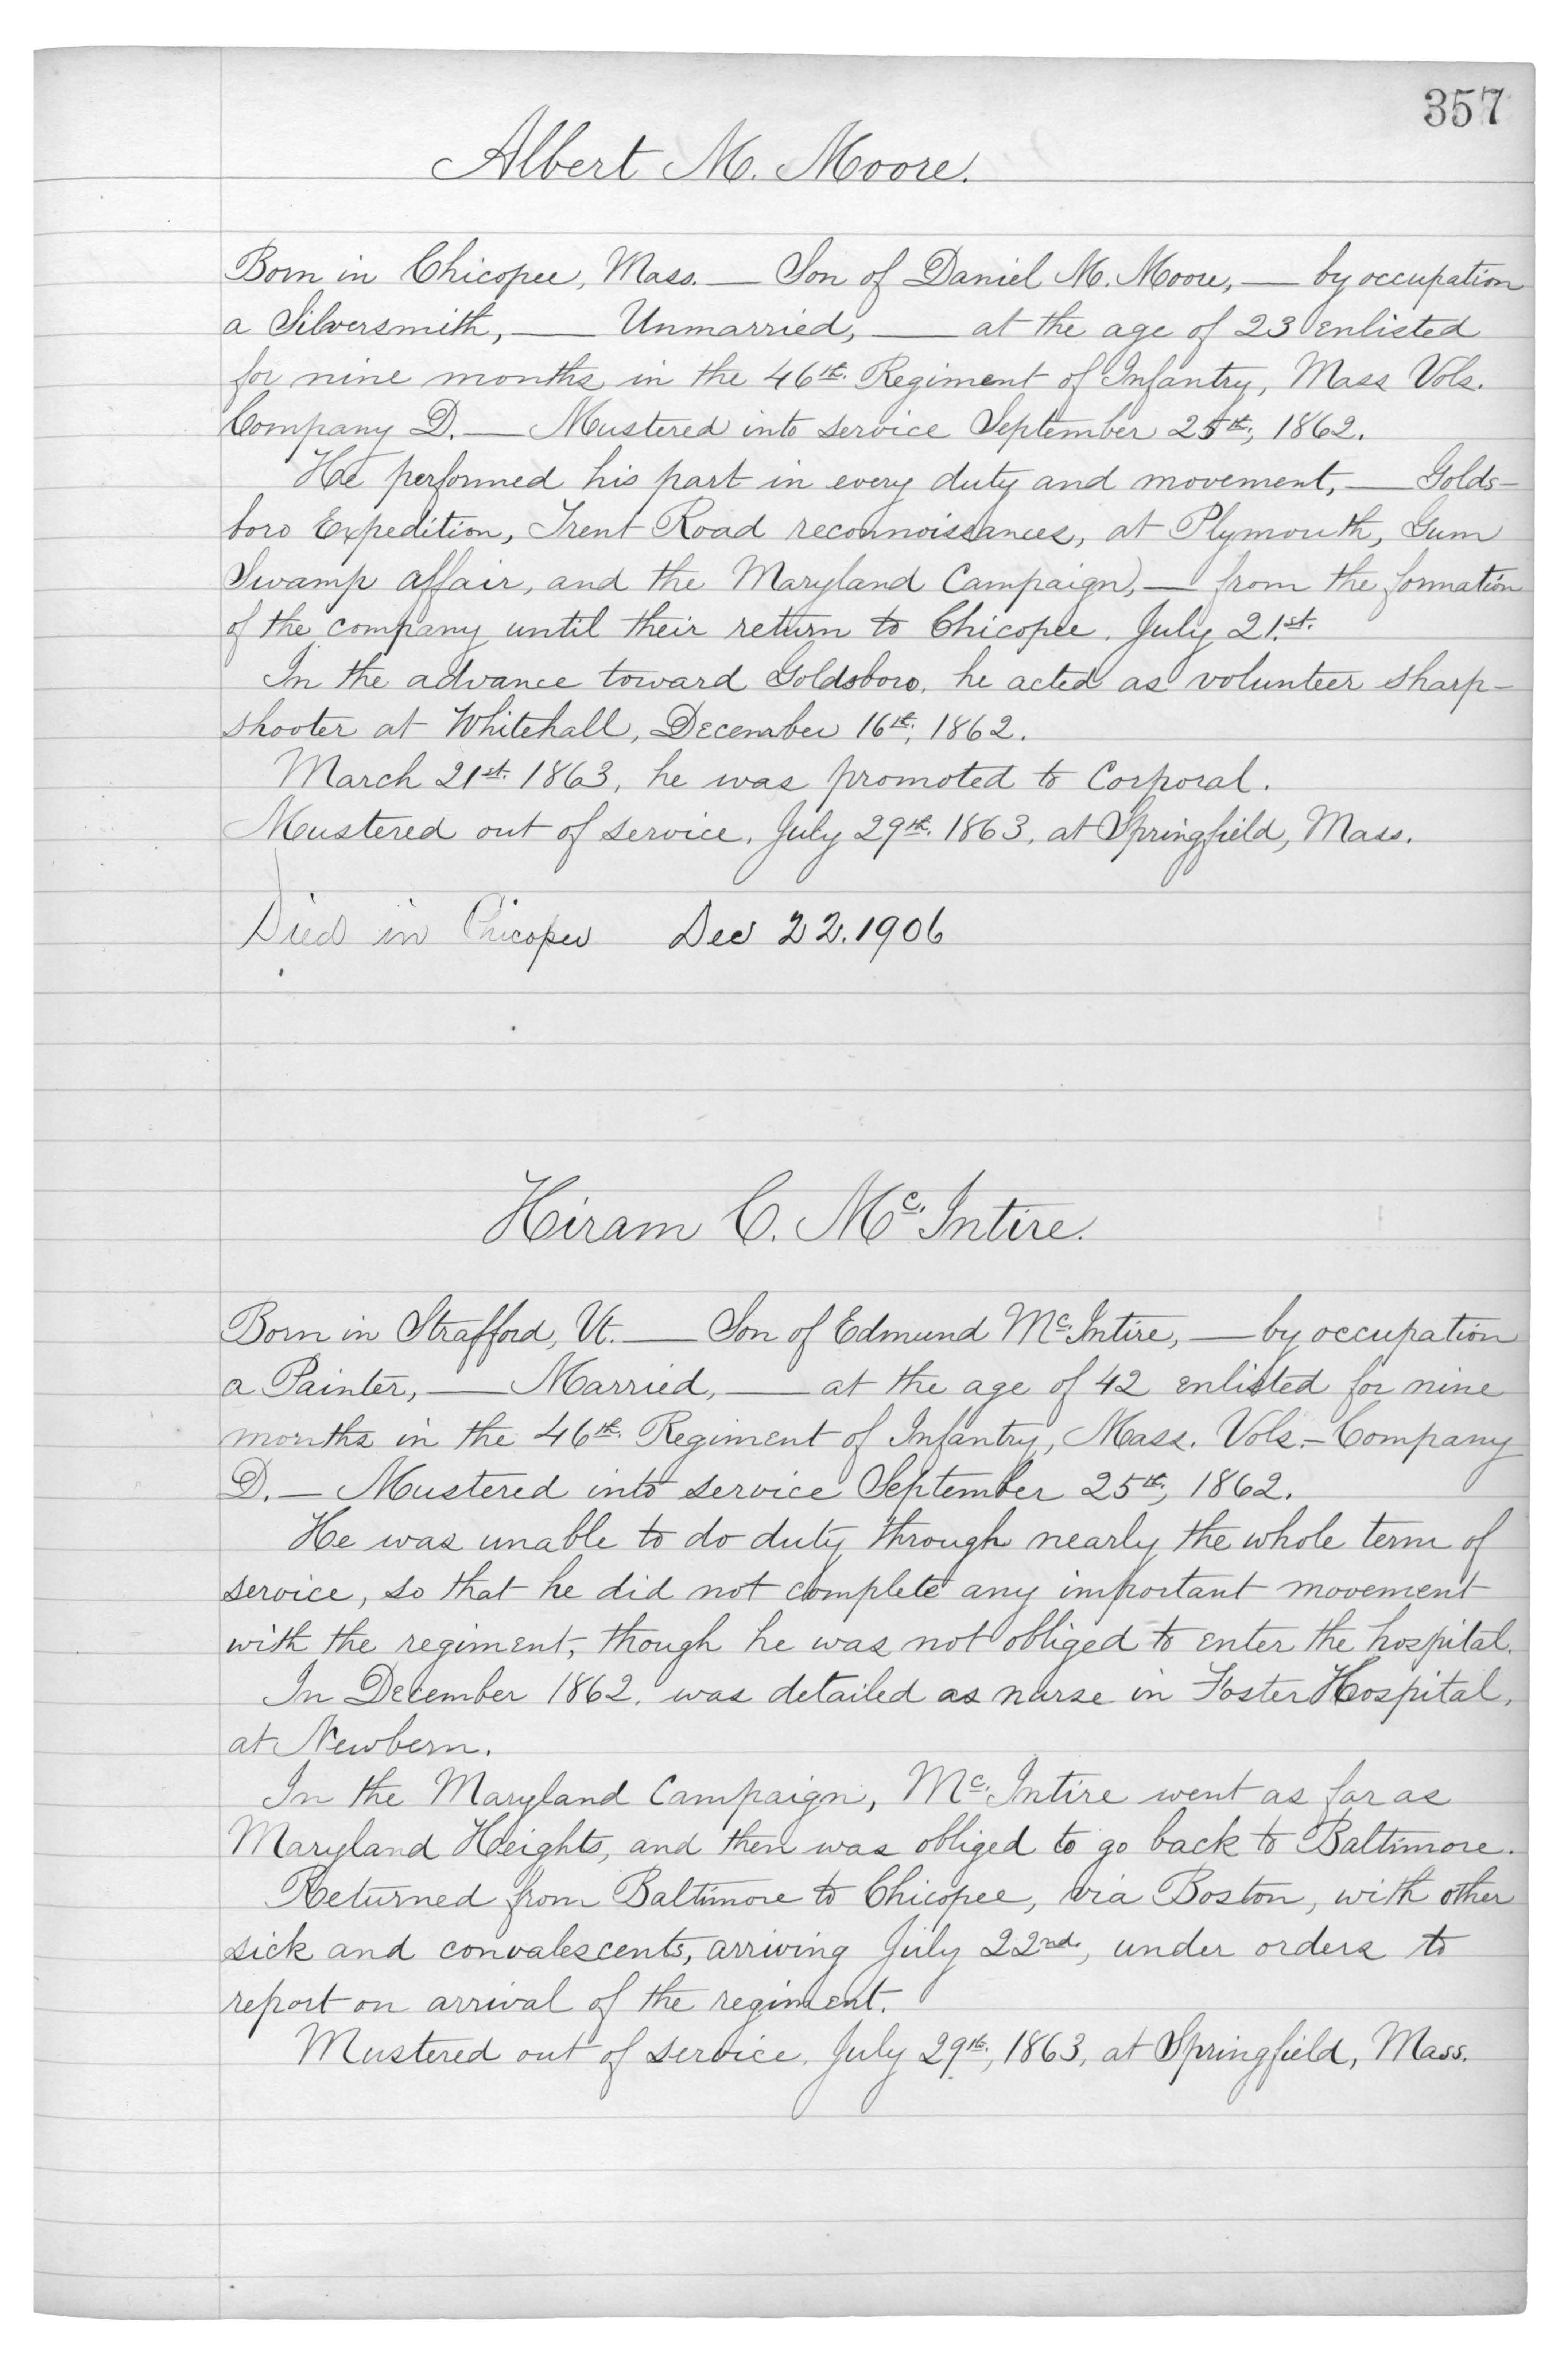 357
Albert M. Moore.
Born in Chicopee, Mass. — Son of Daniel M. Moore, — by occupation
a Silversmith, — Unmarried, — at the age of 23 enlisted
for nine months in the 46th. Regiment of Infantry, Mass Vols.
Company D. — Mustered into service September 25th, 1862.
He performed his part in every duty and movement, — Golds-
boro Expedition, Trent Road reconnoissances, at Plymouth, Gum
Swamp affair, and the Maryland Campaign, — from the formation
of the company until their return to Chicopee, July 21st.
In the advance toward Goldsboro, he acted as volunteer sharp-
shooter at Whitehall, December 16th, 1862.
March 21st. 1863, he was promoted to Corporal.
Mustered out of service, July 29th. 1863, at Springfield, Mass.
Died in Chicopee Dec 22. 1906
Hiram C. Mc. Intire.
Born in Strafford, Vt. — Son of Edmund Mc. Intire, — by occupation
a Painter, — Married, — at the age of 42 enlisted for nine
months in the 46th. Regiment of Infantry, Mass. Vols. – Company
D. — Mustered into service September 25th, 1862.
He was unable to do duty through nearly the whole term of
service, so that he did not complete any important movement
with the regiment, though he was not obliged to enter the hospital.
In December 1862, was detailed as nurse in Foster Hospital,
at Newbern.
In the Maryland Campaign, Mc. Intire went as far as
Maryland Heights, and then was obliged to go back to Baltimore.
Returned from Baltimore to Chicopee, via Boston, with other
sick and convalescents, arriving July 22nd, under orders to
report on arrival of the regiment.
Mustered out of service, July 29th, 1863, at Springfield, Mass.